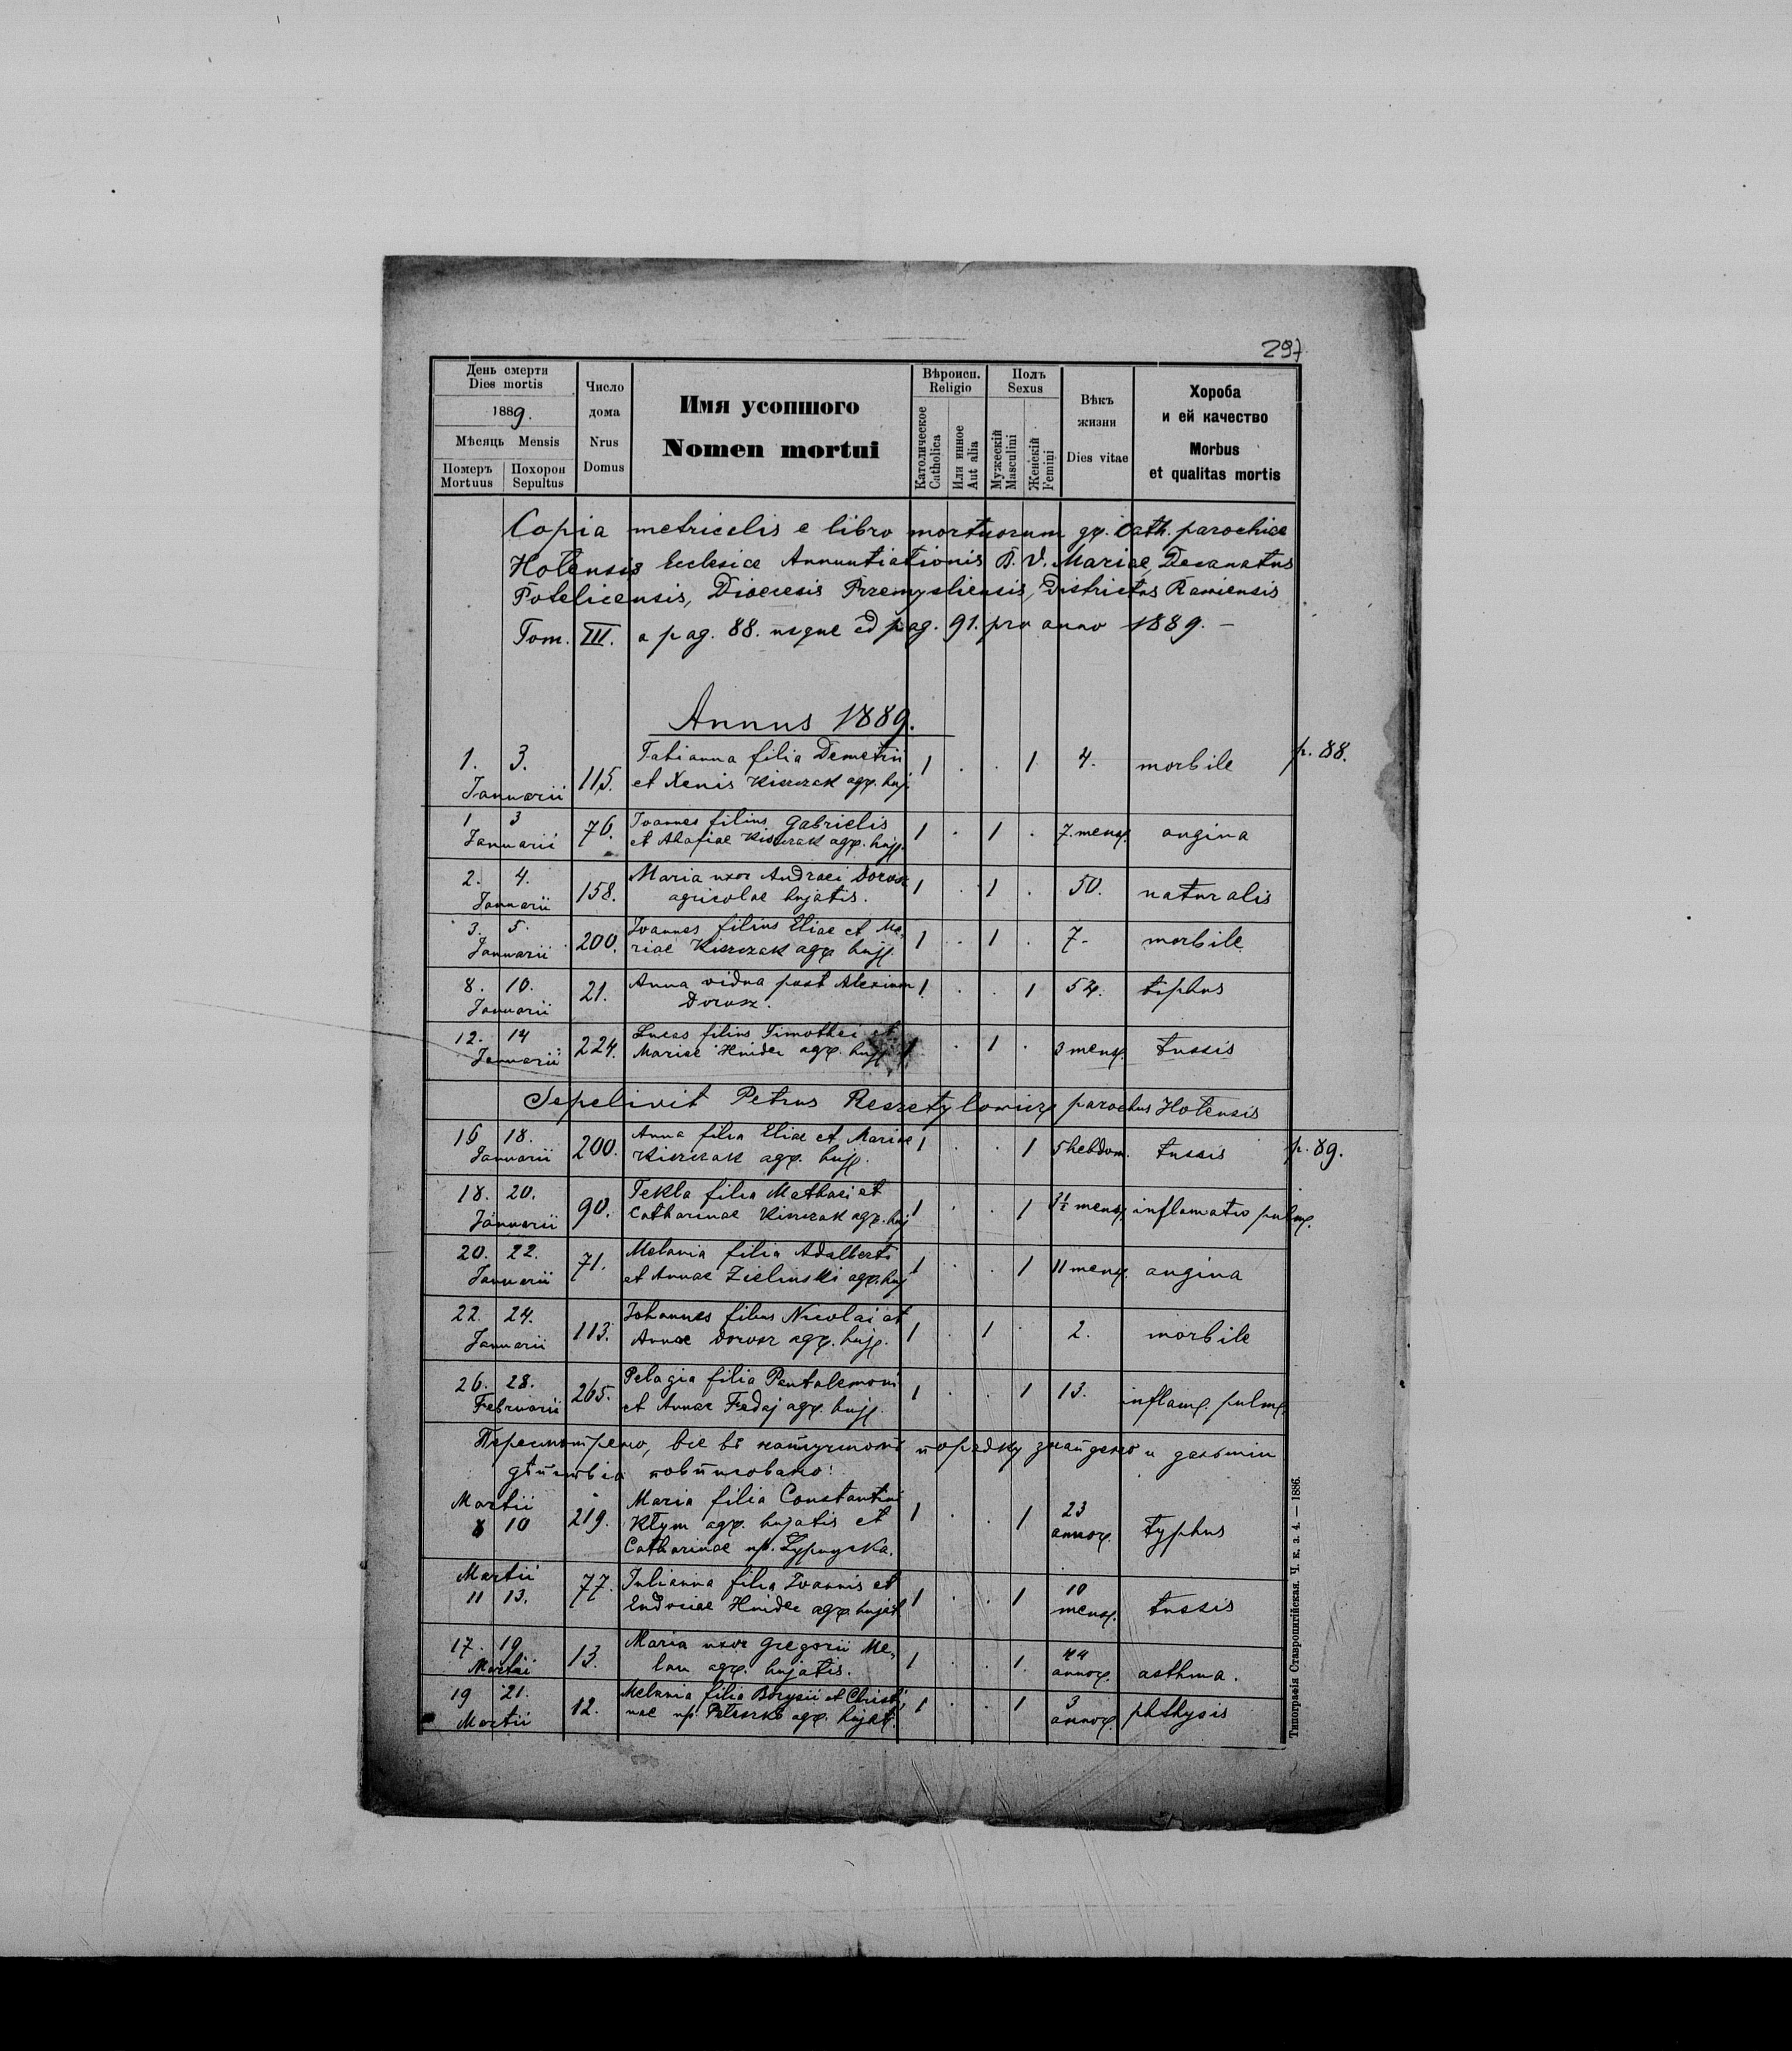 297
День смерти
Dies mortis
1889.
Мѣсяць Mensis
Померъ Похорон
Mortuus Sepultus
Число
дома
Nrus
Domus
Имя усопшого
Nomen mortui
Вѣроисп.
Religio
Католическое
Catholica
Или инное
Aut alia
Полъ
Sexus
Мужескій
Masculini
Женскій
Femini
Вѣкъ
жизни
Dies vitae
Хороба
и ей качество
Morbus
et qualitas mortis
Copia metricalis e libro mortuorum gr. cath. parochiae
Hotensis Ecclesiae Annuntiationis B. V. Mariae, Decanatus
Potelicensis, Dioecesis Przemysliensis, Districtus Raviensis
Tom. III. a pag. 88. usque ad pag. 91. pro anno 1889. –
Annus 1889.
1. 3. Tatianna filia Demetrii 1 . . 1 4. morbile p. 88.
Januarii 115. et Xenis Kiszczak agr. huj.
1 3 76. Joannes filius Gabrielis 1 . 1 . 7. mens. angina
Januarii et Ahafiae Kiszczak agr. huj.
2. 4. 158. Maria uxor Andraei Dorosz 1 . 1 . 50. naturalis
Januarii agricolae hujatis.
3. 5. 200. Joannes filius Eliae et Ma- 1 . 1 . 7. morbile
Januarii riae Kiszczak agr. huj.
8. 10. 21. Anna vidua post Alexium 1 . . 1 54. tiphus
Januarii Dorosz.
12. 14 224. Lucas filius Timothei et 1 . 1 . 3 mens. tussis
Januarii Mariae Hnidec agr. huj.
Sepelivit Petrus Reszetylowicz parochus Hotensis
16 18. 200. Anna filia Eliae et Mariae 1 . . 1 5 hebdom. tussis p. 89.
Januarii Kiszczak agr. huj.
18. 20. 90. Tekla filia Mathaei et 1 . . 1 mens. inflamatio pulm.
Januarii Catharinae Kiszczak agr. huj
20. 22. 71. Melania filia Adalberti 1 . . 1 11 mens. angina
Januarii et Annae Zielinski agr. huj
22. 24. 113. Johannes filius Nicolai et 1 . 1 . 2. morbile
Januarii Annae Dorosz agr. huj.
26. 28. 265. Pelagia filia Pantalemoni 1 . . 1 13. inflam. pulm.
Februarii et Annae Fedaj agr. huj.
Пересмотрено, все въ порядку
Martii 219. Maria filia Constantini 1 . . 1 23 typhus
8 10 Kłym agr. hujatis et annor.
Catharinae np.
Martii 77. Julianna filia Joannis et 1 . . 1 10 tussis
11 13. Eudociae Hnidec agr. hujat. mens.
17. 19. 13. Maria uxor Gregorii Me- 1 . . 1. 44 asthma.
Martii lan agr. hujatis. annor.
19 21. 12. Melania filia Borysii et Christi- 1 . . 1 3 phthysis
Martii nae np. agr. hujat. annor.
Типографія Ставропигійская. Ч. к. з. 4. — 1886.